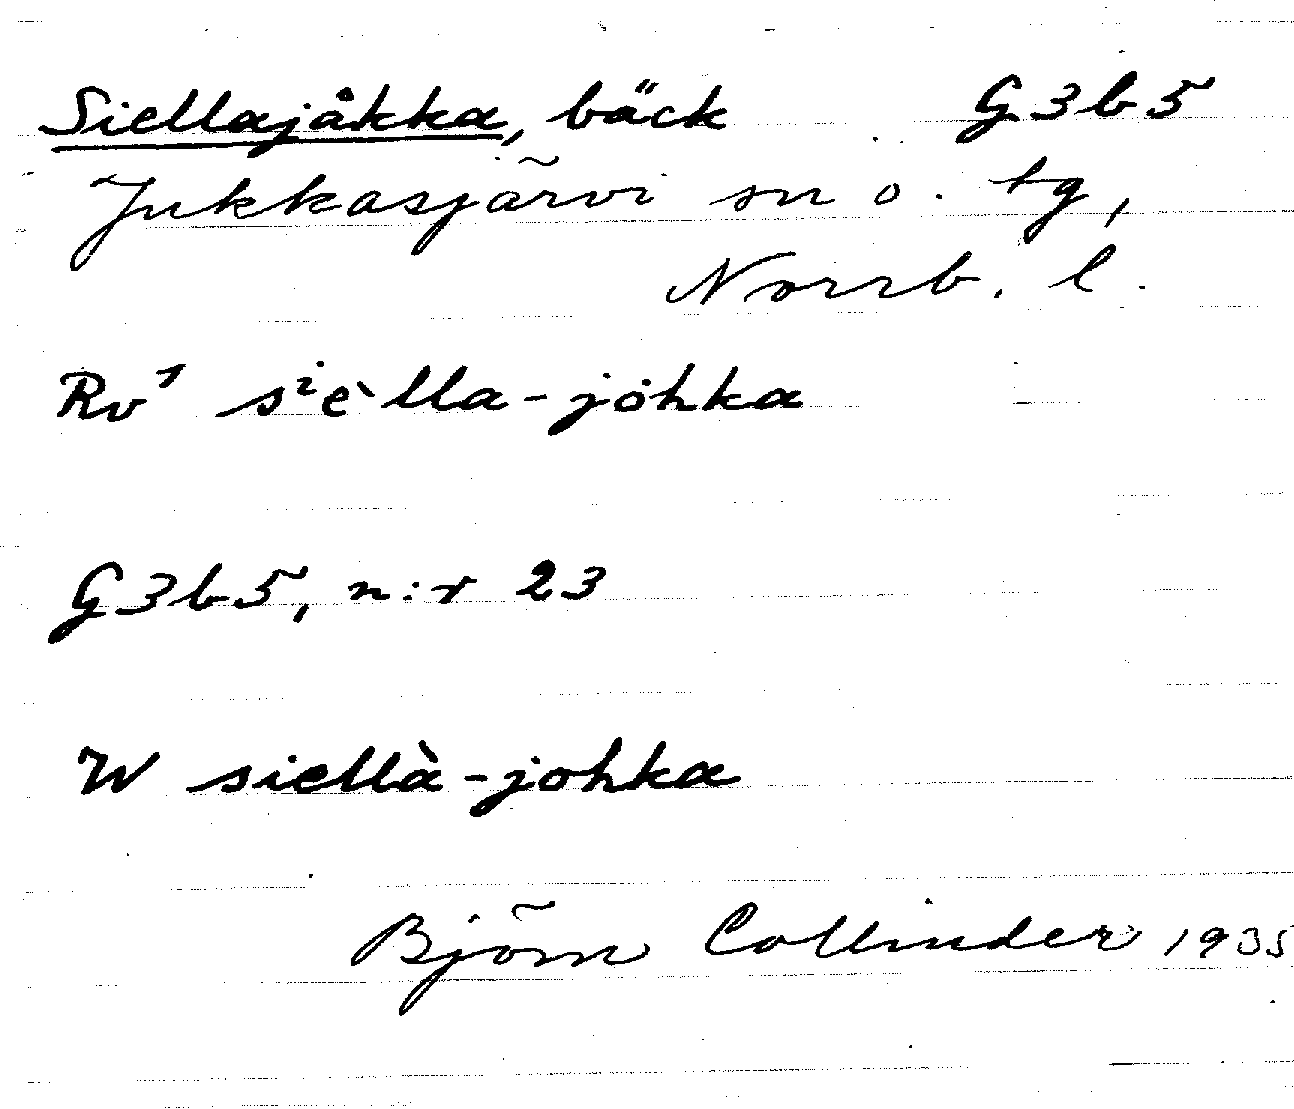 Siellajåkka, bäck G3b5
Jukkasjärvi sn o. tg,
Norrb. l.
Rv¹ sⁱe`lla-jȯhka
G3b5, n:r 23
W siellà-johka
Björn Collinder 1935